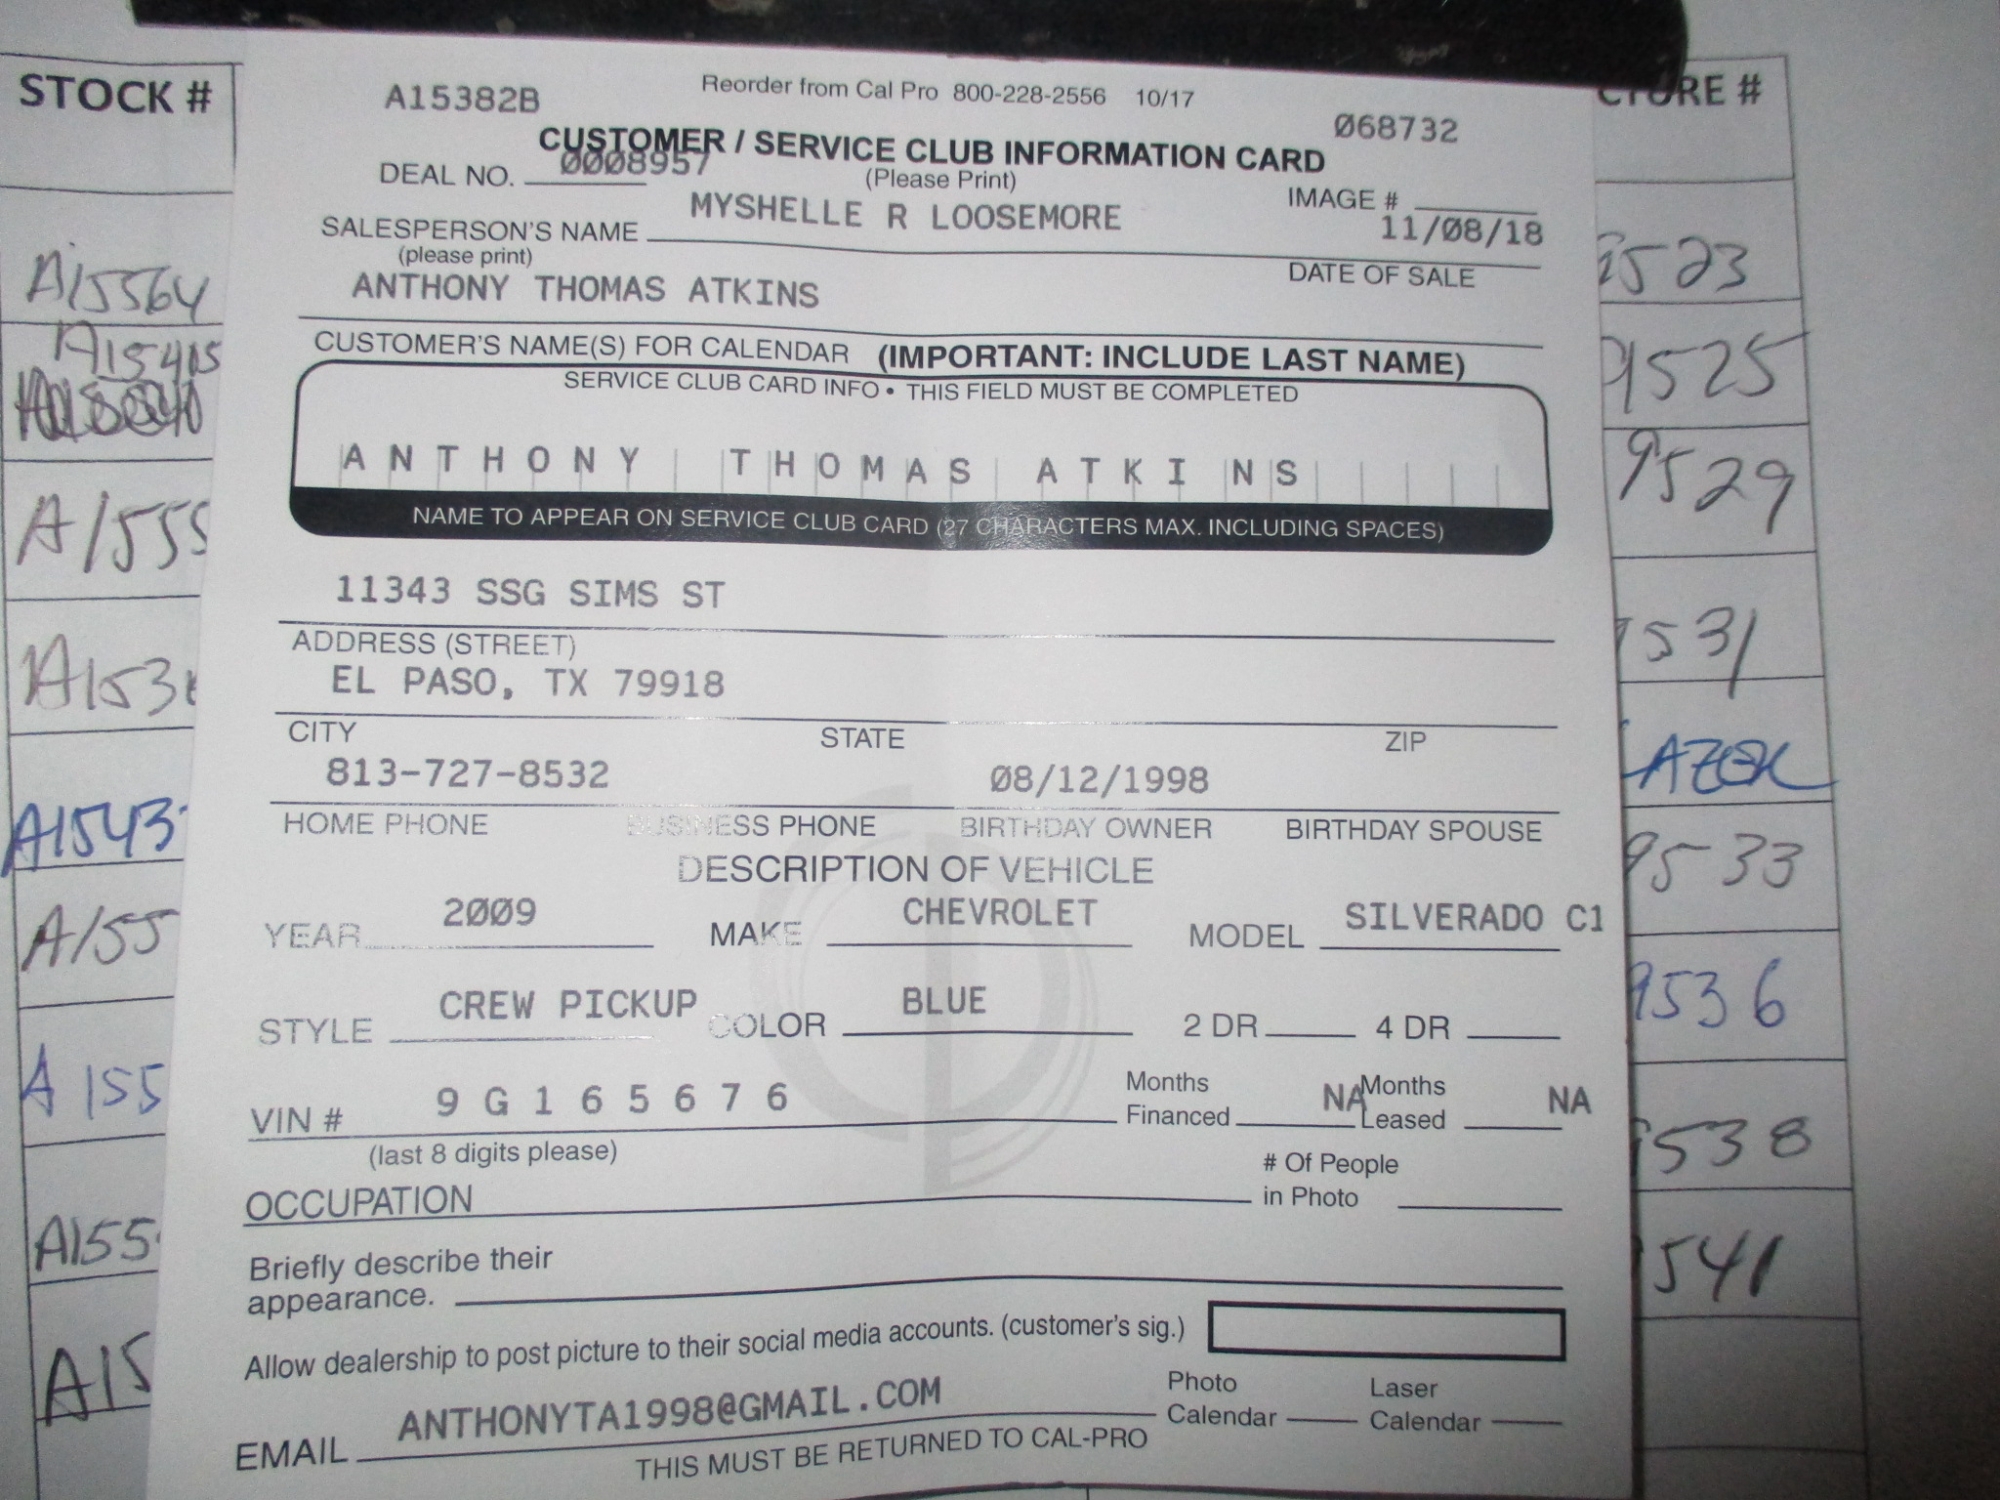 STOCK #
CTURE #
A15382B
Reorder from Cal Pro 800-228-2556 10/17
068732
CUSTOMER / SERVICE CLUB INFORMATION CARD
DEAL NO. 0008957
(Please Print)
IMAGE #
SALESPERSON'S NAME MYSHELLE R LOOSEMORE
11/08/18
(please print)
DATE OF SALE
ANTHONY THOMAS ATKINS
CUSTOMER'S NAME(S) FOR CALENDAR (IMPORTANT: INCLUDE LAST NAME)
SERVICE CLUB CARD INFO • THIS FIELD MUST BE COMPLETED
ANTHONY THOMAS ATKINS
NAME TO APPEAR ON SERVICE CLUB CARD (27 CHARACTERS MAX. INCLUDING SPACES)
11343 SSG SIMS ST
ADDRESS (STREET)
EL PASO, TX 79918
CITY STATE ZIP
813-727-8532 08/12/1998
HOME PHONE BUSINESS PHONE BIRTHDAY OWNER BIRTHDAY SPOUSE
DESCRIPTION OF VEHICLE
YEAR 2009 MAKE CHEVROLET MODEL SILVERADO C1
STYLE CREW PICKUP COLOR BLUE 2 DR 4 DR
VIN # 9G165676
Months Financed NA Months Leased NA
(last 8 digits please)
# Of People in Photo
OCCUPATION
Briefly describe their
appearance.
Allow dealership to post picture to their social media accounts. (customer's sig.)
Photo Calendar Laser Calendar
EMAIL ANTHONYTA1998@GMAIL.COM
THIS MUST BE RETURNED TO CAL-PRO
A15564
A15405
A1555
A153
A1543
A155
A155
A155
A15
9523
9525
9529
9531
9533
9536
9538
9541